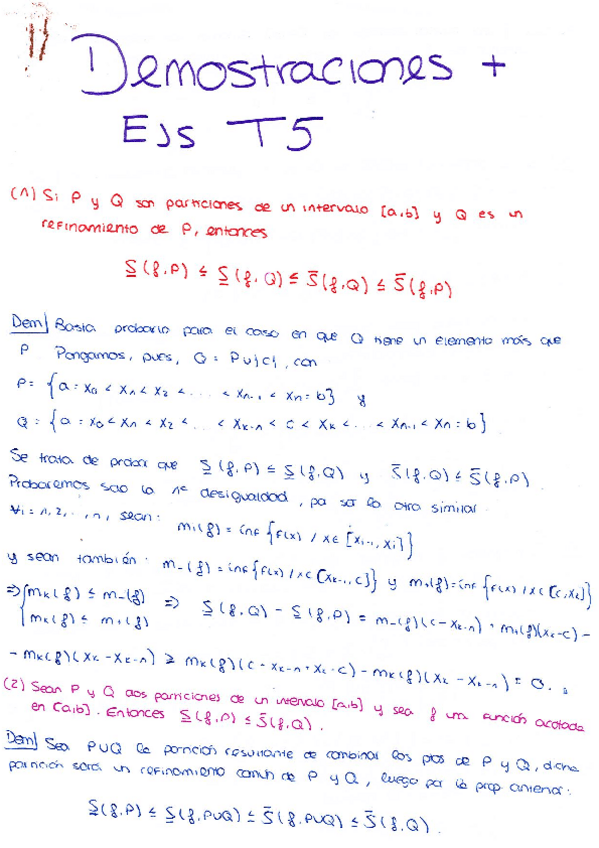 Demostraciones +
Ejs T5
(1) Si P y Q son particiones de un intervalo [a,b] y Q es un
refinamiento de P, entonces
S̲(f,P) ≤ S̲(f,Q) ≤ S̄(f,Q) ≤ S̄(f,P)
Dem| Basta probarlo para el caso en que Q tiene un elemento más que
P Pongamos, pues, Q = P∪{c}, con
P = {a = x₀ < x₁ < x₂ < ... < xₙ₋₁ < xₙ = b} y
Q = {a = x₀ < x₁ < x₂ < ... < xₖ₋₁ < c < xₖ < ... < xₙ₋₁ < xₙ = b}
Se trata de probar que S̲(f,P) ≤ S̲(f,Q) y S̄(f,Q) ≤ S̄(f,P).
Probaremos solo la 1ª desigualdad, pq ser la otra similar
∀i = 1, 2, ..., n, sean: mᵢ(f) = inf {f(x) / x ∈ [xᵢ₋₁, xᵢ]}
y sean también: m₋(f) = inf {f(x) / x ∈ [xₖ₋₁, c]} y m₊(f) = inf {f(x) / x ∈ [c, xₖ]}
⇒ {mₖ(f) ≤ m₋(f)
mₖ(f) ≤ m₊(f) ⇒ S̲(f,Q) - S̲(f,P) = m₋(f)(c - xₖ₋₁) + m₊(f)(xₖ - c) -
- mₖ(f)(xₖ - xₖ₋₁) ≥ mₖ(f)(c - xₖ₋₁ + xₖ - c) - mₖ(f)(xₖ - xₖ₋₁) = 0.
(2) Sean P y Q dos particiones de un intervalo [a,b] y sea f una función acotada
en [a,b]. Entonces S̲(f,P) ≤ S̄(f,Q).
Dem| Sea P∪Q la partición resultante de combinar los ptos de P y Q, dicha
partición será un refinamiento común de P y Q, luego por la prop anterior:
S̲(f,P) ≤ S̲(f,P∪Q) ≤ S̄(f,P∪Q) ≤ S̄(f,Q).